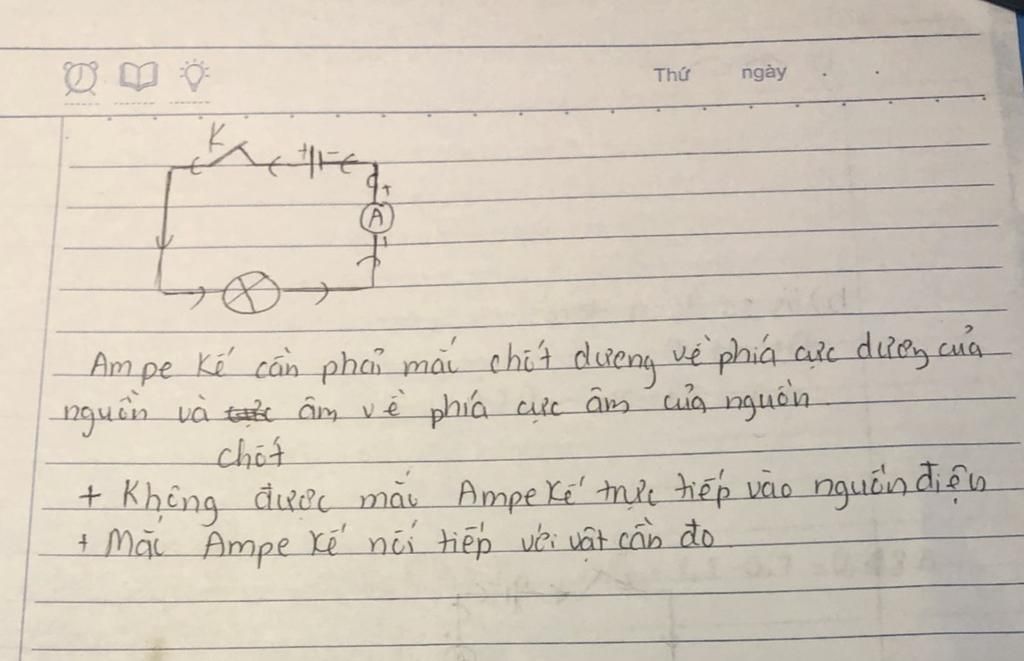 Thứ ngày . .
K
+ -
+
A
-
Ampe kế cần phải mắc chốt dương về phiá cực dương của
nguồn và âm về phiá cực âm của nguồn
chốt
+ Không được mắc Ampe kế trực tiếp vào nguồn điện
+ Mắc Ampe kế nối tiếp với vật cần đo